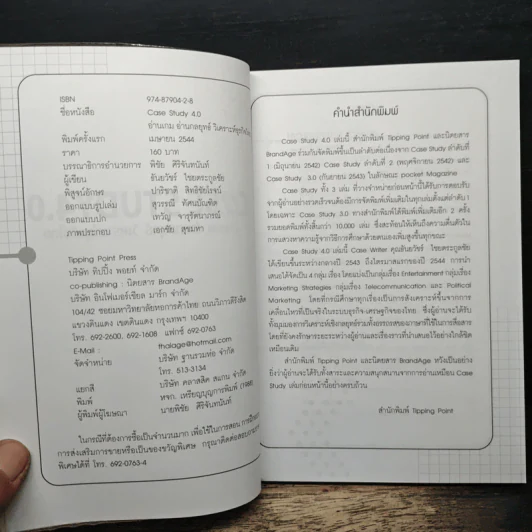 ISBN 974-87904-2-8
ชื่อหนังสือ Case Study 4.0
อ่านเกม อ่านกลยุทธ์ วิเคราะห์ธุรกิจไทย
พิมพ์ครั้งแรก เมษายน 2544
ราคา 160 บาท
บรรณาธิการอำนวยการ พิชัย ศิริจันทนันท์
ผู้เขียน ธันยวัชร์ ไชยตระกูลชัย
พิสูจน์อักษร ปาริชาติ สิทธิชัยโรจน์
ออกแบบรูปเล่ม สุวรรณี ทัศนบัณฑิต
ออกแบบปก เทวัญ จารุรัตนาภรณ์
ภาพประกอบ เอกชัย สุขมหา
Tipping Point Press
บริษัท ทิปปิ้ง พอยท์ จำกัด
co-publishing : นิตยสาร BrandAge
บริษัท อินไฟเมอร์เชียล มาร์ท จำกัด
104/42 ซอยมหาวิทยาลัยหอการค้าไทย ถนนวิภาวดีรังสิต
แขวงดินแดง เขตดินแดง กรุงเทพฯ 10400
โทร. 692-2600, 692-1608 แฟกซ์ 692-0763
E-Mail : thaiage@hotmail.com
จัดจำหน่าย บริษัท ฐานรวมห่อ จำกัด
โทร. 513-3134
แยกสี บริษัท คลาสสิค สแกน จำกัด
พิมพ์ หจก. เหรียญบุญการพิมพ์ (1988)
ผู้พิมพ์ผู้โฆษณา นายพิชัย ศิริจันทนันท์
ในกรณีที่ต้องการซื้อเป็นจำนวนมาก เพื่อใช้ในการสอน การฝึกอบรม
การส่งเสริมการขายหรือเป็นของขวัญพิเศษ กรุณาติดต่อสอบถามราคา
พิเศษได้ที่ โทร. 692-0763-4
คำนำสำนักพิมพ์
Case Study 4.0 เล่มนี้ สำนักพิมพ์ Tipping Point และนิตยสาร
BrandAge ร่วมกันจัดพิมพ์ขึ้นเป็นลำดับต่อเนื่องจาก Case Study ลำดับที่
1 (มิถุนายน 2542) Case Study ลำดับที่ 2 (พฤศจิกายน 2542) และ
Case Study 3.0 (กันยายน 2543) ในลักษณะ pocket Magazine
Case Study ทั้ง 3 เล่ม ที่วางจำหน่ายก่อนหน้านี้ได้รับการตอบรับ
จากผู้อ่านอย่างรวดเร็วจนต้องมีการจัดพิมพ์เพิ่มเติมในทุกเล่มตั้งแต่ลำดับ 1
โดยเฉพาะ Case Study 3.0 ทางสำนักพิมพ์ได้พิมพ์เพิ่มเติมอีก 2 ครั้ง
รวมยอดพิมพ์ทั้งสิ้นกว่า 10,000 เล่ม ซึ่งสะท้อนให้เห็นถึงความตื่นตัวใน
การแสวงหาความรู้จากวิธีการศึกษาด้วยตนเองเพิ่มสูงขึ้นทุกขณะ
Case Study 4.0 เล่มนี้ Case Writer คุณธันยวัชร์ ไชยตระกูลชัย
ได้เขียนขึ้นระหว่างกลางปี 2543 ถึงไตรมาสแรกของปี 2544 การนำ
เสนอได้จัดเป็น 4 กลุ่ม เรื่อง โดยแบ่งเป็นกลุ่มเรื่อง Entertainment กลุ่มเรื่อง
Marketing Strategies กลุ่มเรื่อง Telecommunication และ Political
Marketing โดยที่กรณีศึกษาทุกเรื่องเป็นการสังเคราะห์ขึ้นจากการ
เคลื่อนไหวที่เป็นจริงในระบบธุรกิจ-เศรษฐกิจของไทย ซึ่งผู้อ่านจะได้รับ
ทั้งมุมมองการวิเคราะห์เชิงกลยุทธ์รวมทั้งอรรถรสของภาษาที่ใช้ในการสื่อสาร
โดยที่ยังคงรักษาระยะระหว่างผู้อ่านและเรื่องราวที่นำเสนอไว้อย่างใกล้ชิด
เหมือนเดิม
สำนักพิมพ์ Tipping Point และนิตยสาร BrandAge หวังเป็นอย่าง
ยิ่งว่าผู้อ่านจะได้รับทั้งสาระและความสนุกสนานจากการอ่านเหมือน Case
Study เล่มก่อนหน้านี้อย่างครบถ้วน
สำนักพิมพ์ Tipping Point